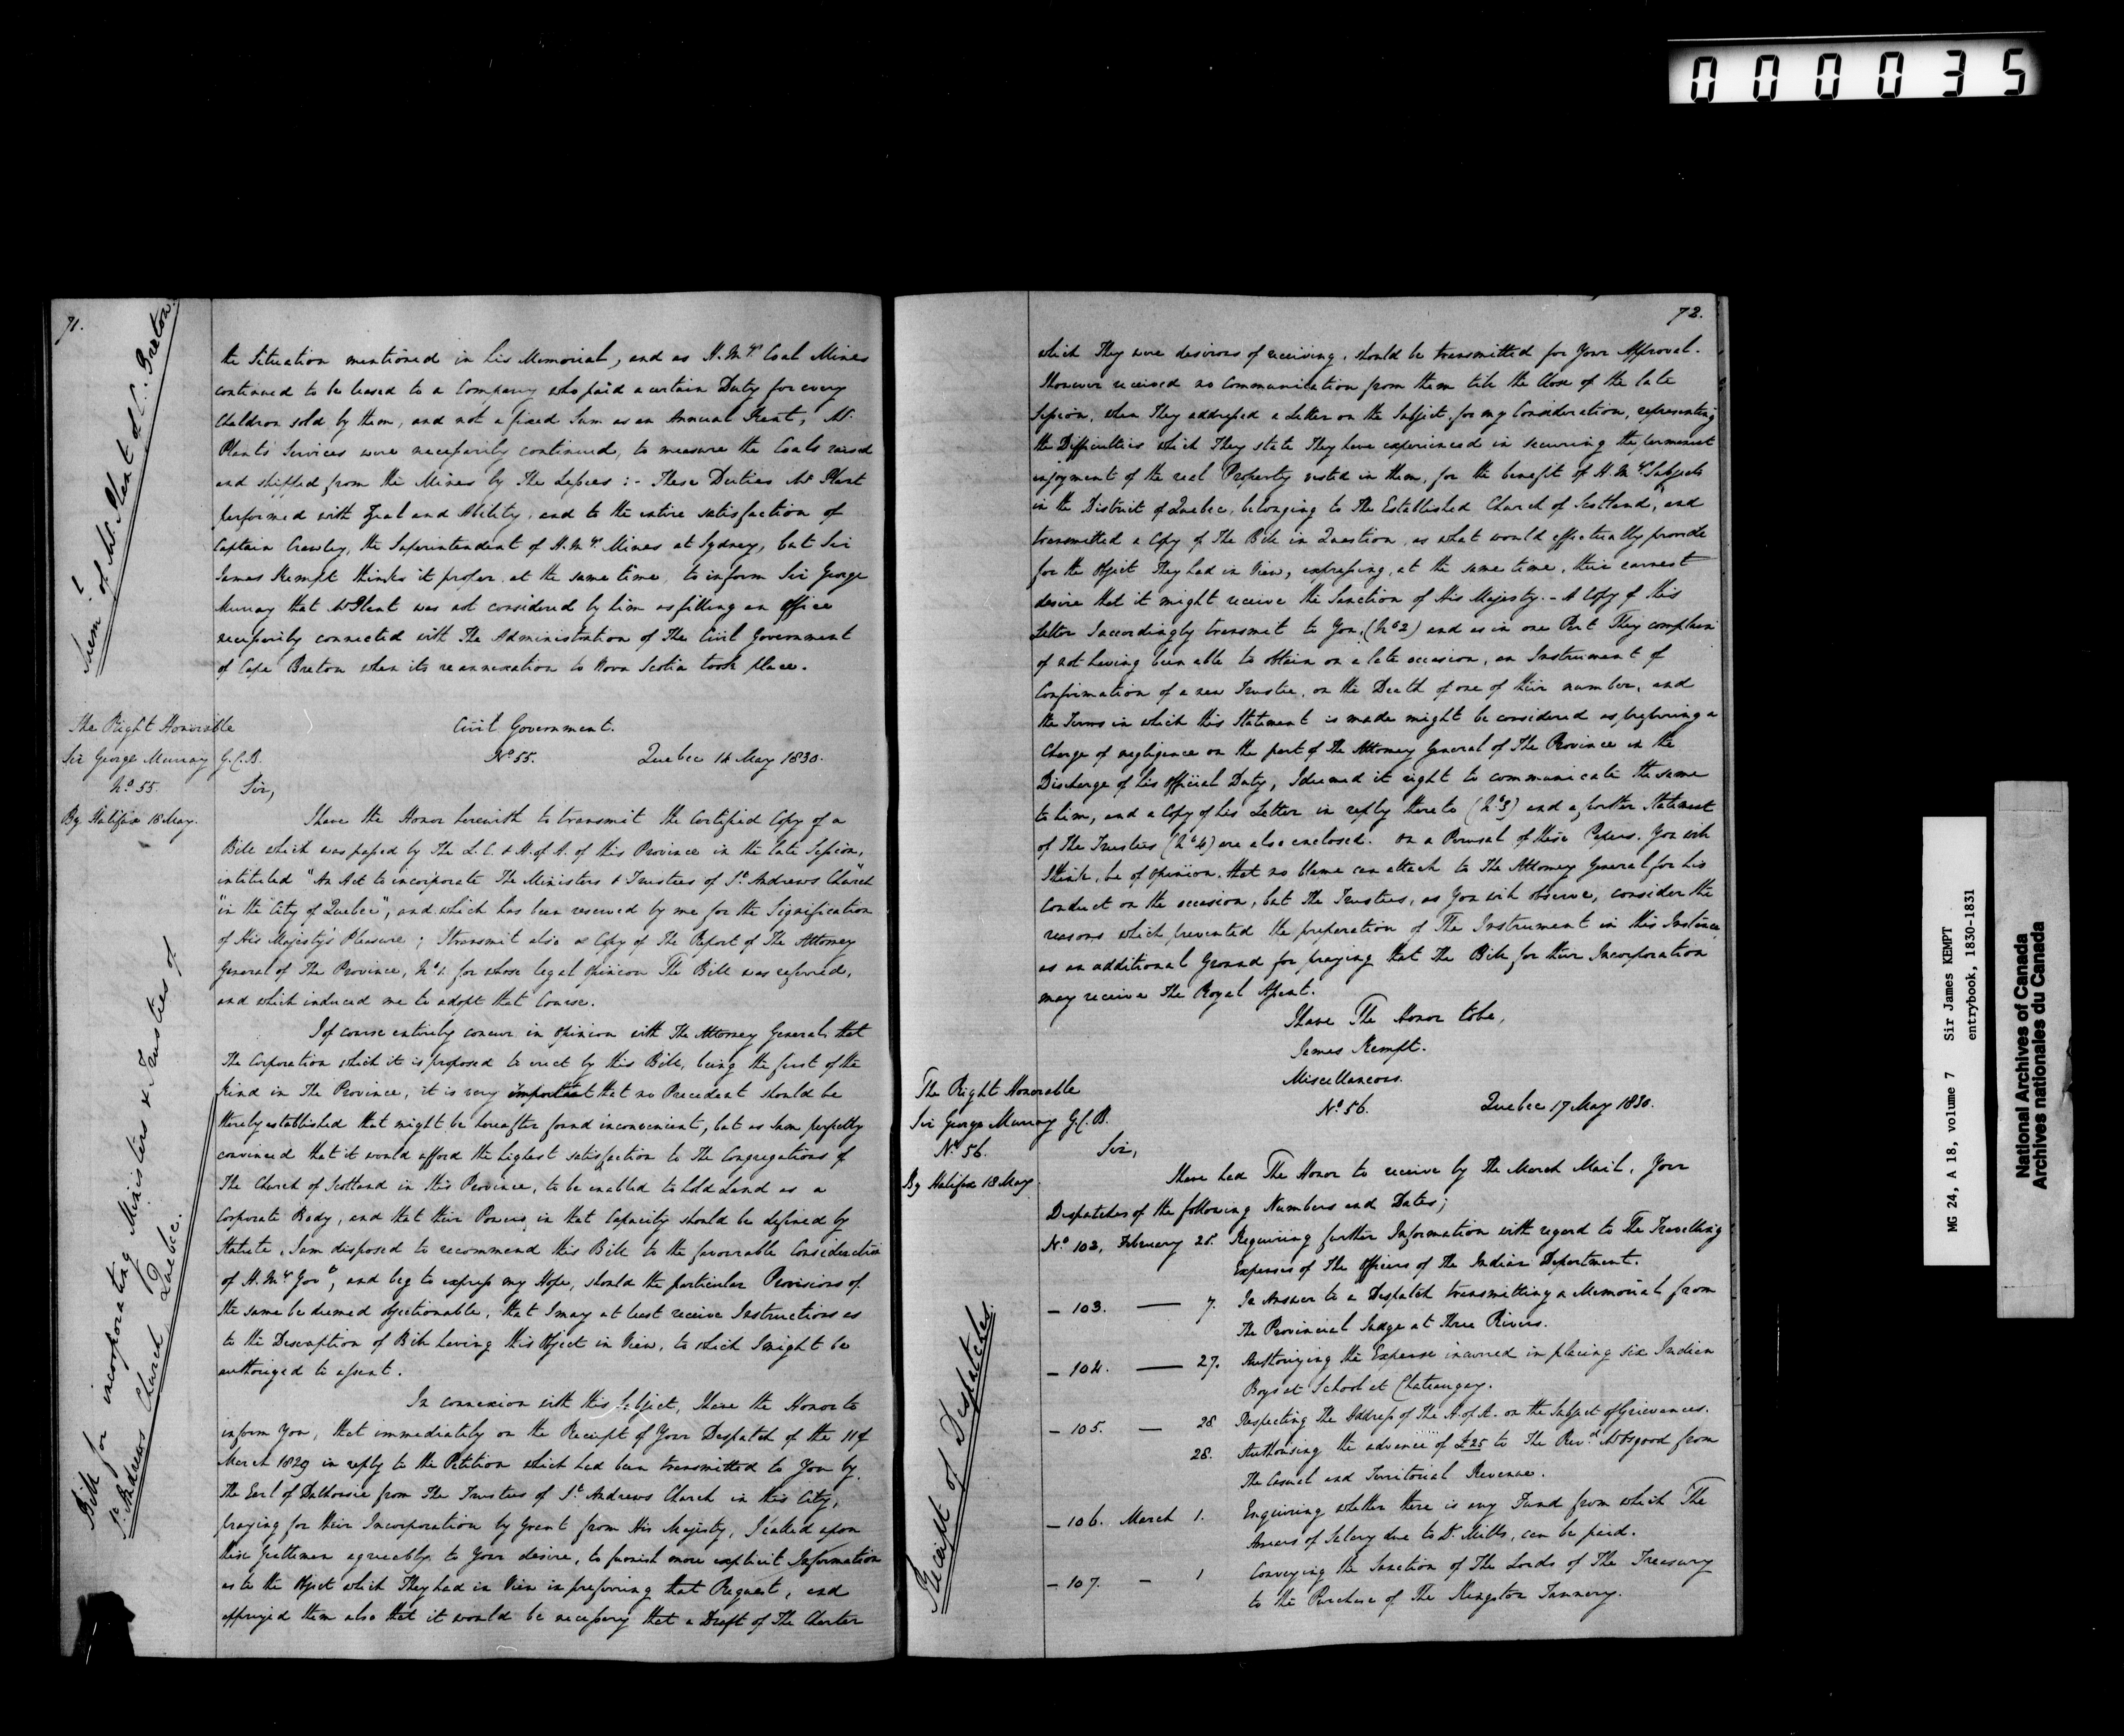 000035
71.
Mem.l of Mr. Plant of C. Breton.
the Situation mentioned in his Memorial, and as H.My's Coal Mines
continued to be leased to a Company who paid a certain Duty for every
Chaldron sold by them, and not a fixed Sum as an Annual Rent, Mr.
Plant's Services were necessarily continued, to measure the Coals raised
and shipped from the Mines by The Lessees :- These Duties Mr Plant
performed with Zeal and Ability, and to the entire satisfaction of
Captain Crawley, the Superintendent of H.My's Mines at Sydney, but Sir
James Kempt thinks it proper at the same time, to inform Sir George
Murray that Mr Plant was not considered by him as filling an office
necessarily connected with The Administration of The Civil Government
of Cape Breton when its reannexation to Nova Scotia took place.
The Right Honorable
Sir George Murray G.C.B.
No 55.
By Halifax 18 May.
Civil Government.
No 55. Quebec 14 May 1830.
Sir,
I have the Honor herewith to transmit the Certified Copy of a
Bill which was passed by The L.C. & H. of A. of this Province in the late Session,
intituled "An Act to incorporate The Ministers & Trustees of St. Andrews Church
"in the City of Quebec", and which has been reserved by me for the Signification
of His Majesty's Pleasure; I transmit also a Copy of The Report of The Attorney
General of The Province, No 1. for whose legal opinion The Bill was referred,
and which induced me to adopt that Course.
I of course entirely concur in opinion with The Attorney General, that
The Corporation which it is proposed to erect by this Bill, being the first of the
kind in The Province, it is very important that no Precedent should be
thereby established that might be hereafter found inconvenient, but as I am perfectly
convinced that it would afford the highest satisfaction to The Congregations of
The Church of Scotland in this Province, to be enabled to hold Land as a
Corporate Body, and that their Powers in that Capacity should be defined by
Statute, I am disposed to recommend this Bill to the favourable Consideration
of H.My's Govt, and beg to express my Hope, should the particular Provisions of
the same be deemed objectionable, that I may at least receive Instructions as
to the Description of Bill having this Object in View, to which I might be
authorized to assent.
In connexion with this Subject, I have the Honor to
inform You, that immediately on the Receipt of Your Despatch of the 11 of
March 1829 in reply to the Petition which had been transmitted to You by
The Earl of Dalhousie from The Trustees of St. Andrews Church in this City,
praying for their Incorporation by Grant from His Majesty, I called upon
these Gentlemen agreeably to Your desire, to furnish more explicit Information
as to the Object which They had in View in preferring that Request, and
apprized them also that it would be necessary that a Draft of The Charter
Bill for incorporating Ministers & Trustees of
St. Andrews Church Quebec.
72.
which They were desirous of receiving, should be transmitted for Your Approval.
I however received no Communication from them till the Close of the late
Session, when They addressed a Letter on the Subject, for my Consideration, representing
the Difficulties which They state They have experienced in securing the permanent
enjoyment of the real Property vested in them, for the benefit of H.My's Subjects
in the District of Quebec, belonging to The Established Church of Scotland, and
transmitted a Copy of The Bill in Question, as what would effectually provide
for the Object They had in View, expressing, at the same time, their earnest
desire that it might receive the Sanction of His Majesty. - A Copy of this
Letter I accordingly transmit to You, (No 2) and as in one Part They complain
of not having been able to obtain on a late occasion, an Instrument of
Confirmation of a new Trustee, on the Death of one of their number, and
the Terms in which this Statement is made might be considered as preferring a
Charge of negligence on the part of The Attorney General of The Province in the
Discharge of his official Duty, I deemed it right to communicate the same
to him, and a Copy of his Letter in reply thereto (No 3) and a further Statement
of The Trustees (No 4) are also enclosed. On a Perusal of these Papers, You will
I think, be of opinion, that no blame can attach to The Attorney General for his
Conduct on the occasion, but The Trustees, as You will observe, consider the
reasons which prevented the preparation of The Instrument in this Instance,
as an additional Ground for praying that The Bill for their Incorporation
may receive The Royal Assent.
I have The Honor to be,
James Kempt.
The Right Honorable
Sir George Murray G.C.B.
No 56.
By Halifax 18 May.
Miscellaneous.
No 56. Quebec 17 May 1830.
Sir,
I have had The Honor to receive by The March Mail, Your
Despatches of the following Numbers and Dates;
No 102, February 25. Requiring further Information with regard to The Travelling
Expenses of The Officers of The Indian Department.
- 103. — 7. In Answer to a Despatch transmitting a Memorial from
The Provincial Judge at Three Rivers.
- 104. — 27. Authorizing the Expense incurred in placing six Indian
Boys at School at Chateaugay.
- 105. — 28. Respecting The Address of The H. of A. on the Subject of Grievances.
28. Authorizing the advance of £25 to The Revd. Mr Osgood from
The Casual and Territorial Revenue.
- 106. March 1. Enquiring whether there is any Fund from which The
Arrears of Salary due to Dr. Mills, can be paid.
- 107. - 1 Conveying the Sanction of The Lords of The Treasury
to the Purchase of The Kingston Tannery.
Receipt of Despatches.
MG 24, A 18, volume 7 Sir James KEMPT
entrybook, 1830-1831
National Archives of Canada
Archives nationales du Canada